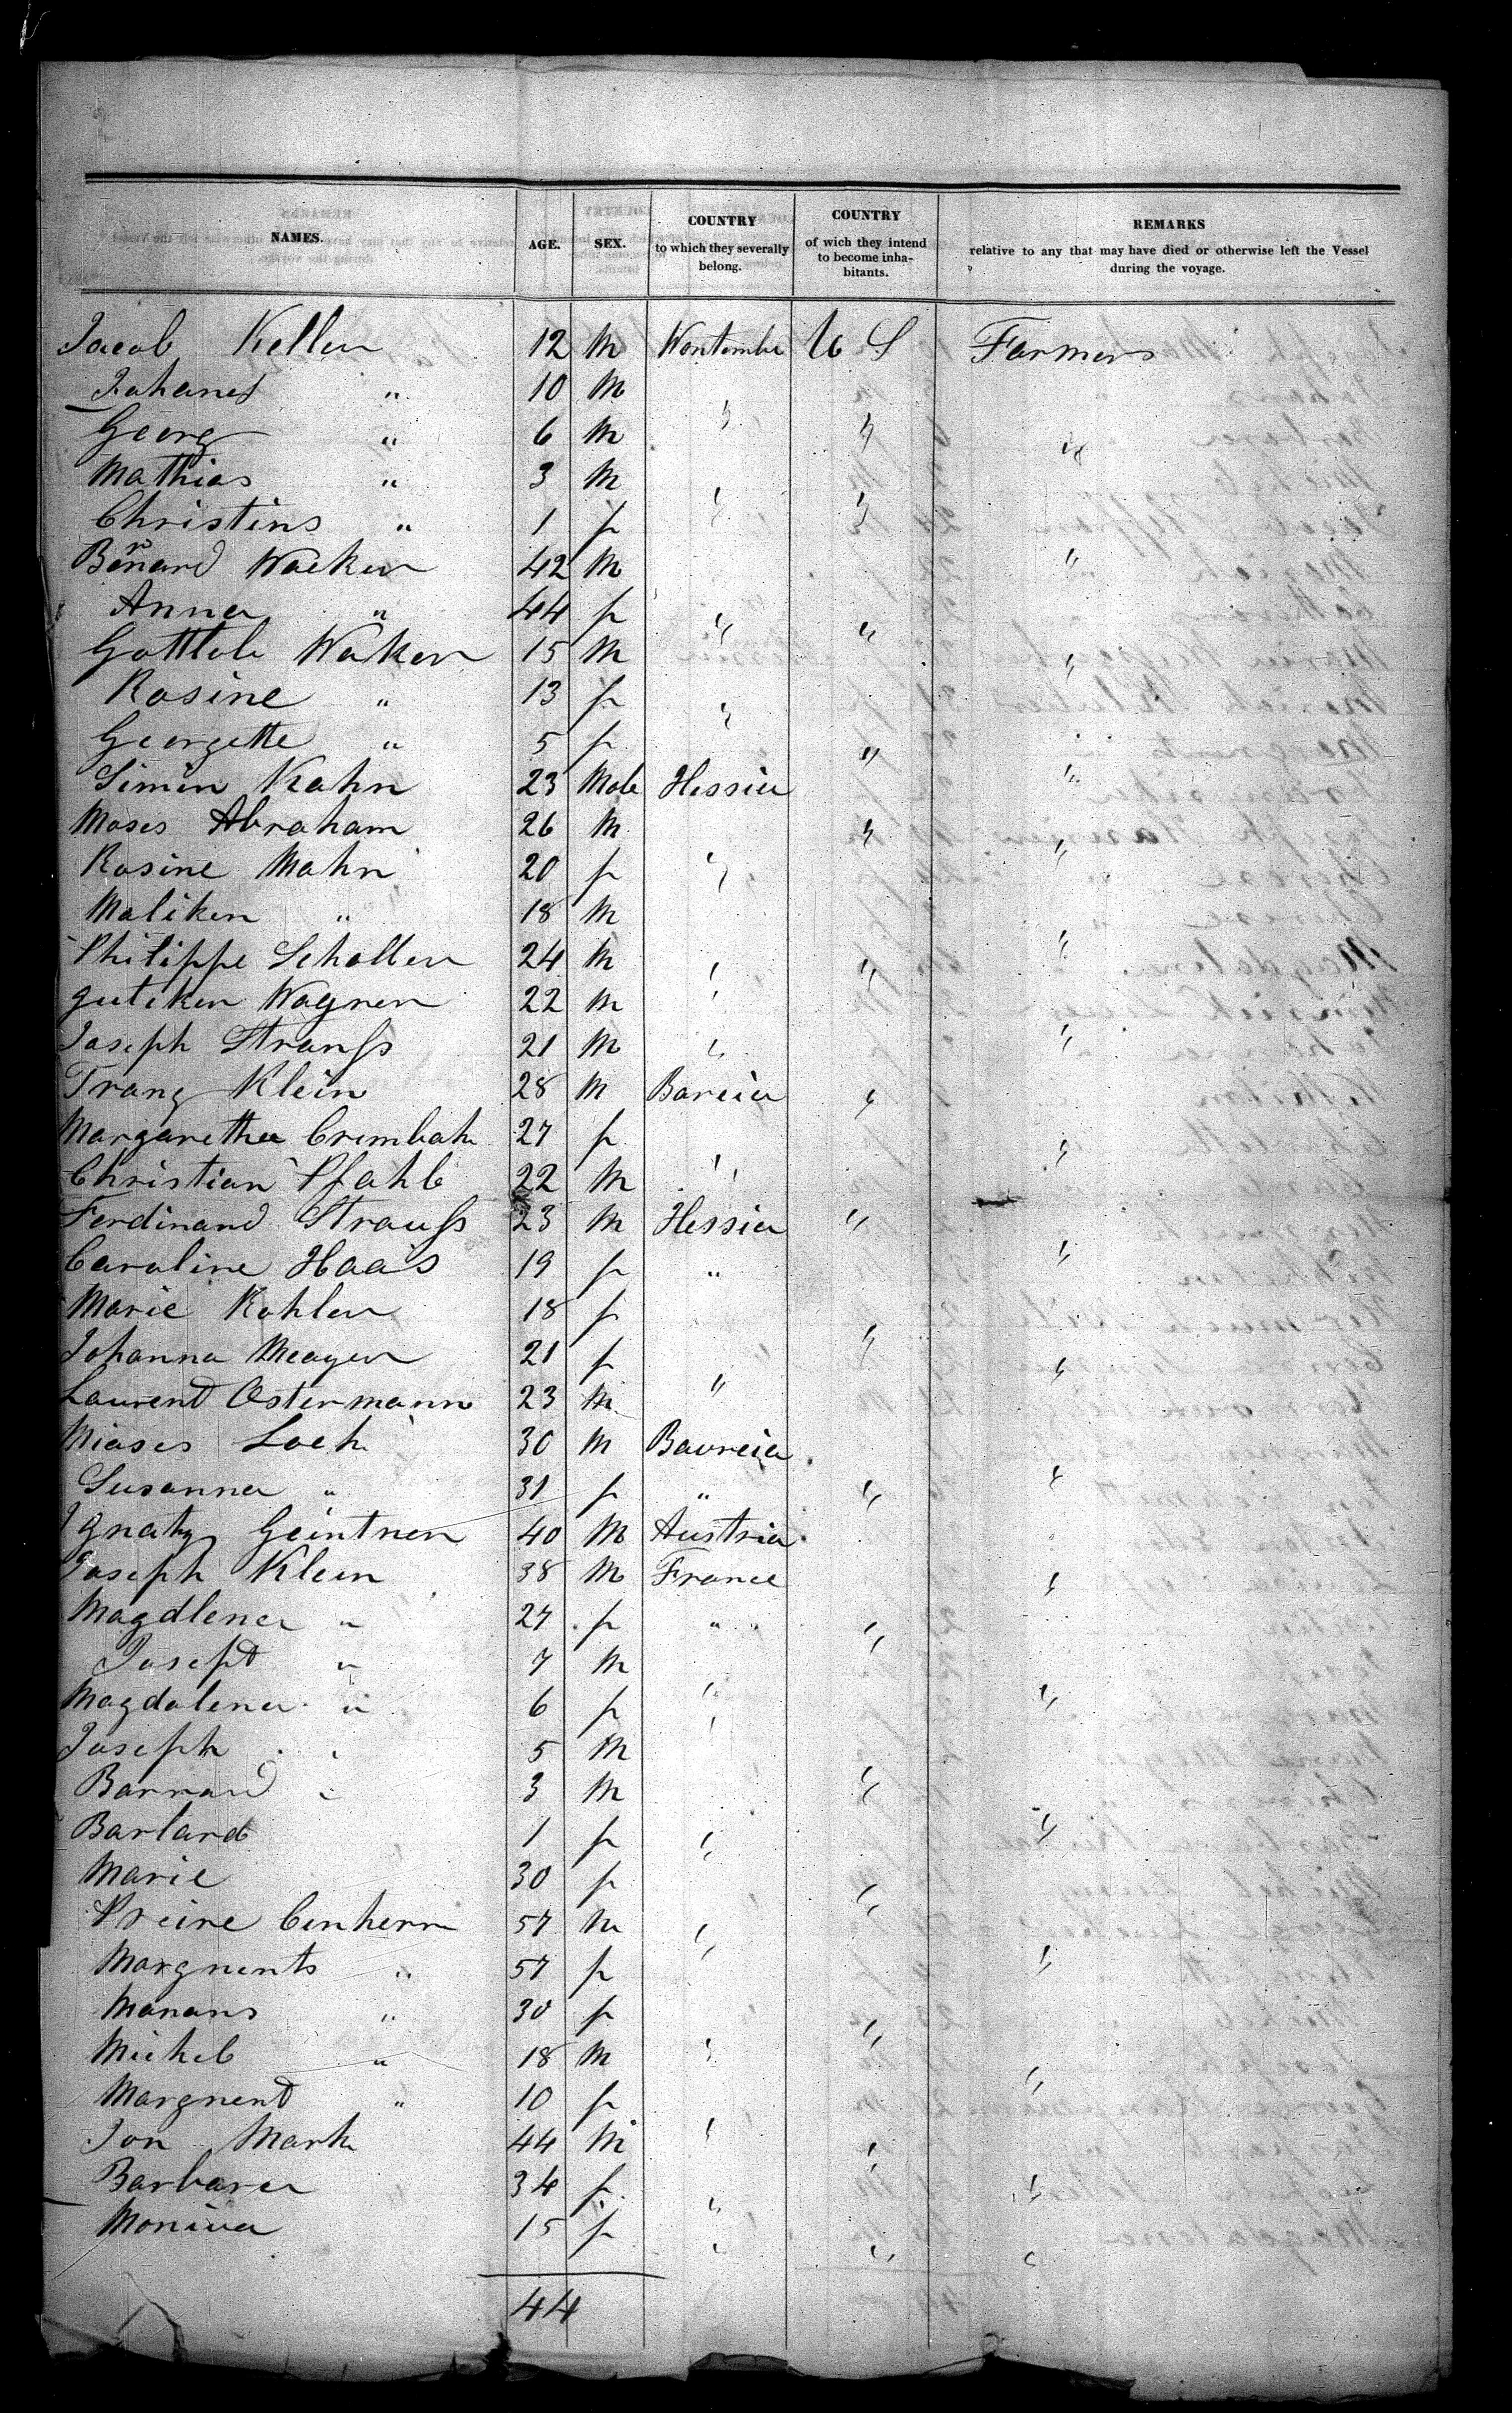 NAMES. AGE. SEX. COUNTRY to which they severally belong. COUNTRY of wich they intend to become inhabitants. REMARKS relative to any that may have died or otherwise left the Vessel during the voyage.
Jacob Keller 12 M Wortembe U S Farmers
Johanes " 10 M
Georg " 6 M " " "
Mathias " 3 M
Christins " 1 f " "
Bernard Wacker 42 M "
Anna " 44 f " "
Gottleb Wacker 15 M "
Rosine " 13 f "
Georgette " 5 f "
Simon Kahn 23 Male Hessia "
Moses Abraham 26 M "
Rosine Mahn 20 f " "
Maliken " 18 M
Philippe Scholler 24 M " " "
Wagner 22 M "
Joseph Strauss 21 M " "
Franz Klein 28 M Bavria "
Margaretha Crimbach 27 f "
Christian Pfahl 22 M "
Ferdinand Strauss 23 M Hessia "
Caroline Haas 19 f " "
Marie Kohler 18 f "
Johanna Meayer 21 f "
Laurent Ostermann 23 M "
Moises Loeh 30 M Bavreia
Susanna " 31 f " " "
Ignatz Geintner 40 M Austria
Joseph Klein 38 M France "
Magdlena " 27 f " "
Josept " 7 M
Magdalena " 6 f " "
Joseph " 5 M "
Barnard " 3 M "
Barlard 1 f " "
Marie 30 f "
Preire Cenherr 57 M "
Margnents " 57 f "
Manans " 30 f "
Michel " 18 M "
Margnent " 10 f "
Jon Mark 44 M " "
Barbara 34 f " "
Moniva 15 f " " "
44